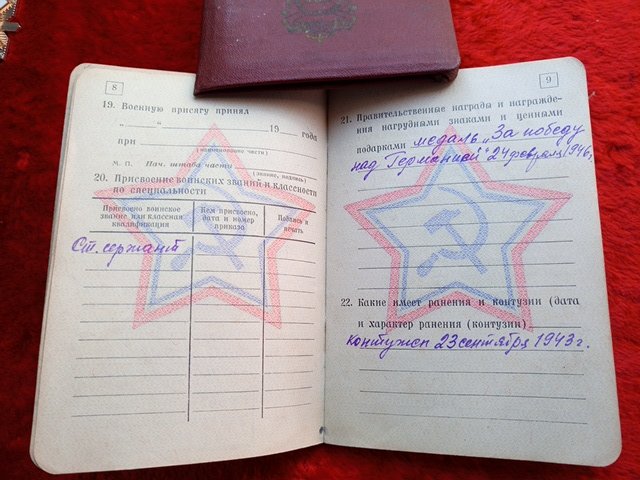 8
19. Военную присягу принял
„ “ 19 года
при
(наименование части)
М. П. Нач. штаба части
(звание, подпись)
20. Присвоение воинских званий и классности
по специальности
Присвоено воинское
звание или классная
квалификация
Кем присвоено,
дата и номер
приказа
Подпись и
печать
Ст. сержант
9
21. Правительственные награды и награжде-
ния нагрудными знаками и ценными
подарками медаль „За победу
над Германией“ 24 февраля 1946г
22. Какие имеет ранения и контузии (дата
и характер ранения (контузии)
контужен 23 сентября 1943 г.